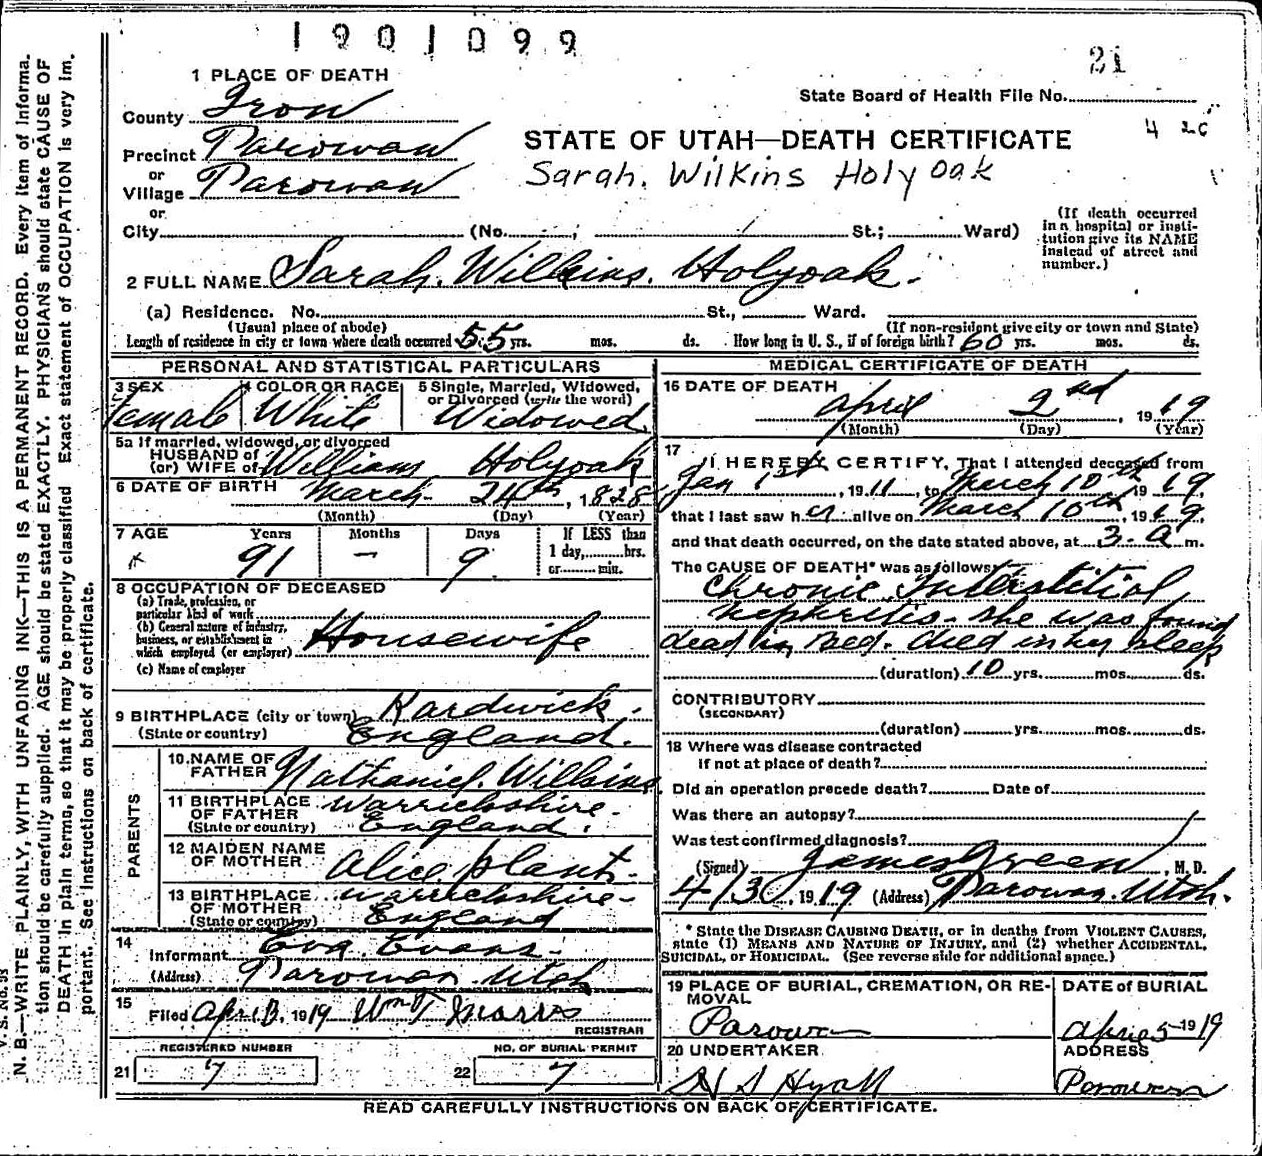 1901099
21
1 PLACE OF DEATH
State Board of Health File No.
County Iron
4 20
Precinct Parowan
STATE OF UTAH—DEATH CERTIFICATE
or
Village Parowan
Sarah. Wilkins Holyoak
or
City (No. ; St.; Ward)
(If death occurred in a hospital or institution give its NAME instead of street and number.)
2 FULL NAME Sarah. Wilkins. Holyoak.
(a) Residence. No. St., Ward.
(Usual place of abode) (If non-resident give city or town and State)
Length of residence in city or town where death occurred 55 yrs. mos. ds. How long in U. S., if of foreign birth? 60 yrs. mos. ds.
PERSONAL AND STATISTICAL PARTICULARS
3 SEX 4 COLOR OR RACE 5 Single, Married, Widowed, or Divorced (write the word)
Female White Widowed
5a If married, widowed, or divorced
HUSBAND of
(or) WIFE of William Holyoak
6 DATE OF BIRTH March 24th, 1828
(Month) (Day) (Year)
7 AGE Years Months Days If LESS than
1 day, hrs.
or min.
91 — 9
8 OCCUPATION OF DECEASED
(a) Trade, profession, or
particular kind of work
(b) General nature of industry,
business, or establishment in
which employed (or employer) Housewife
(c) Name of employer
9 BIRTHPLACE (city or town) Hardwick.
(State or country) England.
PARENTS
10 NAME OF FATHER Nathaniel. Wilkins.
11 BIRTHPLACE OF FATHER Warrickshire
(State or country) England.
12 MAIDEN NAME OF MOTHER Alice Plant.
13 BIRTHPLACE OF MOTHER Warrickshire
(State or country) England
14
Informant Eva Evans.
(Address) Parowan Utah
15
Filed April 3, 1919 Wm T Morris
REGISTRAR
REGISTERED NUMBER NO. OF BURIAL PERMIT
21 7 22 7
MEDICAL CERTIFICATE OF DEATH
16 DATE OF DEATH
April 2nd, 1919
(Month) (Day) (Year)
17
I HEREBY CERTIFY, That I attended deceased from
Jan 1st, 1911, to March 10th 1919
that I last saw her alive on March 10th, 1919
and that death occurred, on the date stated above, at 3 a m.
The CAUSE OF DEATH* was as follows:
Chronic Interstitial
Nephritis. She was found
dead in Bed. Died in her sleep
(duration) 10 yrs. mos. ds.
CONTRIBUTORY
(SECONDARY)
(duration) yrs. mos. ds.
18 Where was disease contracted
if not at place of death?
Did an operation precede death? Date of
Was there an autopsy?
Was test confirmed diagnosis?
(Signed) James Green, M. D.
4/30, 1919 (Address) Parowan. Utah.
* State the DISEASE CAUSING DEATH, or in deaths from VIOLENT CAUSES,
state (1) MEANS AND NATURE OF INJURY, and (2) whether ACCIDENTAL,
SUICIDAL, or HOMICIDAL. (See reverse side for additional space.)
19 PLACE OF BURIAL, CREMATION, OR REMOVAL DATE of BURIAL
Parowan April 5 1919
20 UNDERTAKER ADDRESS
Parowan
READ CAREFULLY INSTRUCTIONS ON BACK OF CERTIFICATE.
V. S. No. 98
N. B.—WRITE PLAINLY, WITH UNFADING INK—THIS IS A PERMANENT RECORD. Every item of informa-
tion should be carefully supplied. AGE should be stated EXACTLY. PHYSICIANS should state CAUSE OF
DEATH in plain terms, so that it may be properly classified. Exact statement of OCCUPATION is very im-
portant. See instructions on back of certificate.